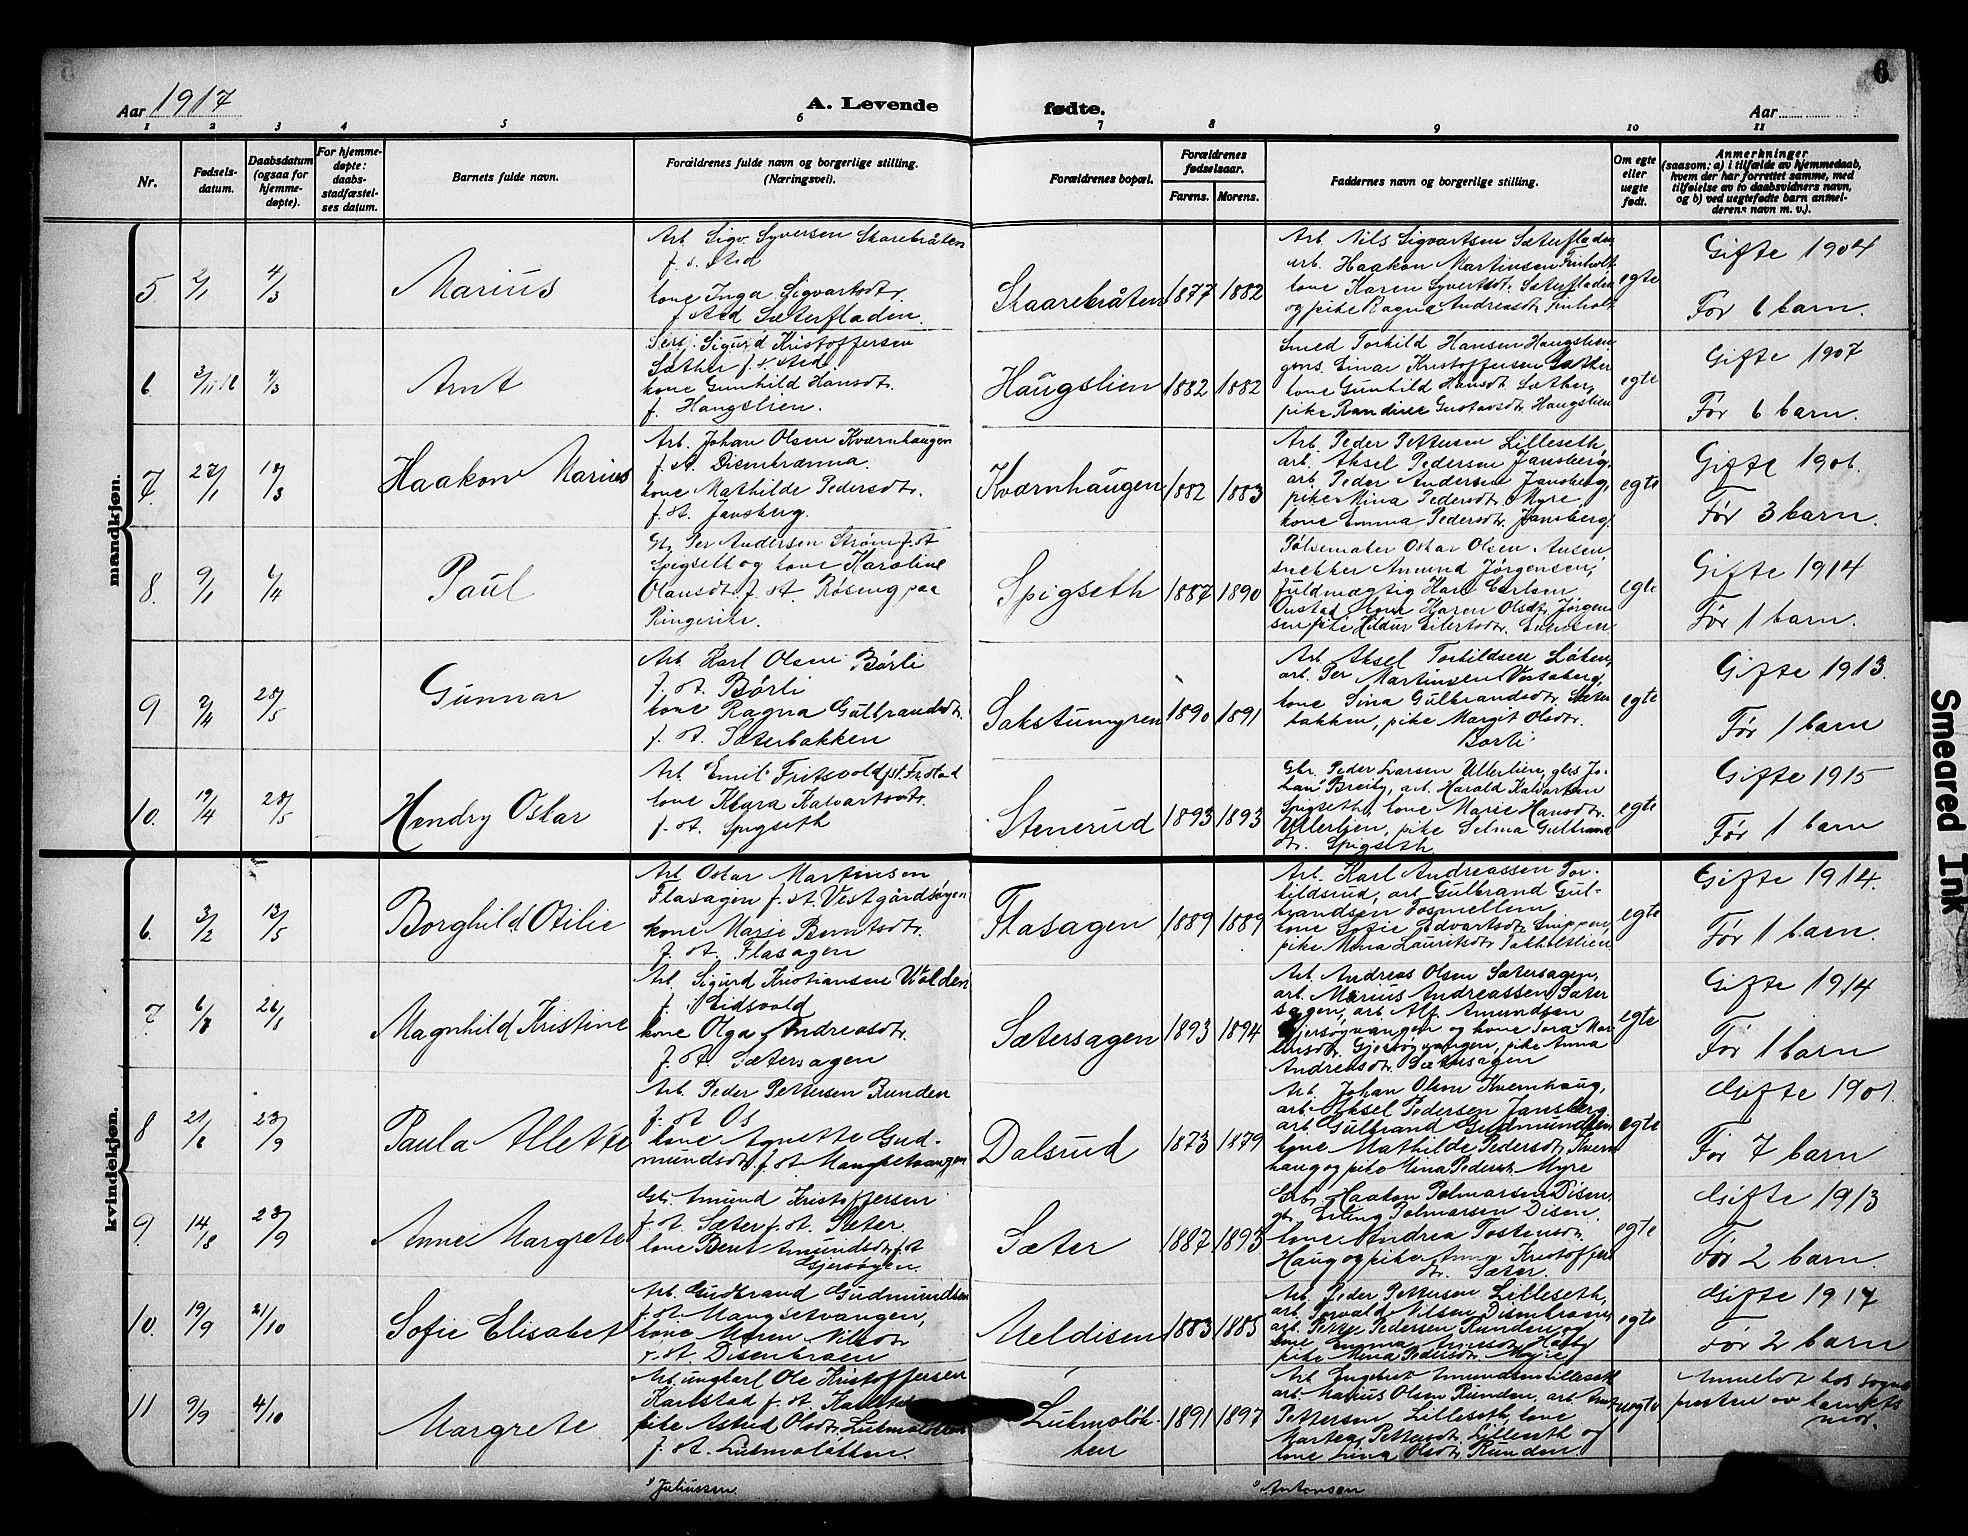 6
Aar 1917
A. Levende
fødte.
Aar
1
2
3
4
5
6
7
8
9
10
11
Nr.
Fødsels-
datum.
Daabsdatum
(ogsaa for
hjemme-
døpte).
For hjemme-
døpte:
daabs-
stadfæstel-
ses datum.
Barnets fulde navn.
Forældrenes fulde navn og borgerlige stilling.
(Næringsvei).
Forældrenes bopæl.
Forældrenes
fødselsaar.
Farens.
Morens.
Faddernes navn og borgerlige stilling.
Om egte
eller
uegte
født.
Anmerkninger
(saasom: a) i tilfælde av hjemmedaab,
hvem der har forrettet samme, med
tilføielse av to daabsvidners navn,
og b) ved uegtefødte barn anmel-
derens navn m. v.).
mandkjøn.
5
2/1
4/3
Marius
Arb. Sigv. Syversen Skarebråten
f. s. sted
kone Inga Sigvartsdtr.
f. sted Sæterfladen.
Skaarebråten
1877
1882
Arb. Nils Sigvartsen Sæterfladen
arb. Haakon Martinsen Finholt
kone Karen Syvertsdt. Sæterfladen
og pike Ragna Andreasdtr Finholt
egte
Gifte 1904
Før 6 barn.
6
Arnt
Serj. Sigurd Kristoffersen
Sæther f. s. sted
kone Gunhild Hansdtr.
f. Haugslien.
Haugslien
1882
1882
Smed Torkild Hansen Haugslien
gens. Einar Kristoffersen Sæther
kone Gunhild Hansdtr Sæther,
pike Randine Gustavsdtr Haugslien
egte
Gifte 1907
Før 6 barn.
7
27/1
18/3
Haakon Marius
Arb. Johan Olsen Kværnhaugen
f. st. Disenbrænna.
kone Mathilde Pedersdtr.
f. st. Jansberg.
Kværnhaugen
1882
1883
Arb. Peder Pettersen Lilleseth,
arb. Aksel Pedersen Jansberg,
arb. Peder Andersen Jansberg,
pike Mina Pedersdtr. Myre,
kone Emma Pedersdtr. Jansberg.
egte
Gifte 1906.
Før 3 barn.
8.
9/1
6/4
Paul
Gb. Per Andersen Strøm f. st
Spigseth og kone Karoline
Olausdt. f. st. Røseng paa
Ringerike.
Spigseth
1887
1890
Pølsemaker Oskar Olsen
snekker Amund Jørgensen,
fuldmægtig Hans Carlsen
kone Karen Olsdtr. Jørgen-
sen, pike Hildur Eilertsdtr.
egte
Gifte 1914
Før 1 barn.
9
2/4
28/5
Gunnar
Arb. Karl Olsen Børli
f. st. Børli
kone Ragna Gulbrandsdtr.
f. st. Sæterbakken
Sakstumyren
1890
1891
Arb. Aksel Torkildsen Løken,
arb. Per Martinsen
kone Sina Gulbrandsdtr. Sæter
bakken, pike Margit Olsdtr.
Børli
egte
Gifte 1913.
Før 1 barn
10.
19/4
28/5
Hendry Oskar
Arb. Emil Fritsvold f. st. Fr.stad
kone Klara Kalvartsdtr.
f. st. Spigseth
Stenerud
1893
1893
Gbr. Peder Larsen Ullerlien, gbs Jo-
han Breiby, arb. Harald Kalvartsen
Spigseth, kone Marie Hansdtr.
Ullerlien, pike Selma Gulbrand
dtr. Spigseth
egte
Gifte 1915
Før 1 barn
kvindekjøn.
6.
3/2
13/5
Borghild Otilie
Arb. Oskar Martinsen
Flasagen f. st. Vestgårdsøgen
kone Marie Berntsdtr.
f. st. Flasagen
Flasagen
1889
1889
Arb. Karl Andreassen Tor-
kildsrud, arb. Gulbrand Gul-
brandsen Fosmellem,
kone Sofie Edvartsdtr.
pike Mina Lauritsdtr.
egte
Gifte 1914.
Før 1 barn.
7
Magnhild Kristine
Arb. Sigurd Kristiansen Wolden
f. i Eidsvold
kone Olga Andreasdtr.
f. st. Sætersagen
Sætersagen
1893
1894
Arb. Andreas Olsen Sætersagen,
arb. Marius Andreassen Sæter
sagen, arb. Alf Amundsen
Gjersøyvangen og kone Tora Mar
tinsdtr. Gjersøgvangen, pike Anna
Andreasdtr. Sætersagen
egte
Gifte 1914
Før 1 barn
8
21/6
23/9
Paula Allette
Arb. Peder Pettersen Runden
f. st. Os
kone Agnette Gud-
mundsdtr. f. st. Mangsetvangen
Dalsrud
1873
1879
Arb. Johan Olsen Kvernhaug,
arb. Aksel Pedersen Jansberg.
arb. Gulbrand Gudmundsen
kone Mathilde Pedersdtr. Kvern
haug og pike Mina Pedersdt. Myre
egte
Gifte 1901.
Før 7 barn
9.
14/8
23/9
Anne Margrete
Gb. Amund Kristoffersen
f. st. Sæter f. st. Sæter.
kone Berit Amundsdtr. f. st
Gjersøgen.
Sæter
1887
1893
Gbr. Haakon Polmarsen Disen,
gb. Erling Polmarsen Disen.
kone Andrea Tostensdtr.
Haug og pike Anna Kristoffers
dtr. Sæter.
egte
Gifte 1913
Før 2 barn.
10.
19/9
21/10
Sofie Elisabet
Arb. Gudbrand Gudmundsen
f. st. Mangsetvangen,
kone Maren Nilsdtr.
f. st. Disenbraen
Meldisen
1883
1885
Arb. Peder Pettersen Lilleseth,
arb. Torvald Nilsen Disenbraen,
arb. Petter Pedersen Runden og
kone Emma
pike Mina Pedersdtr. Myre
egte
Gifte 1917
Før 2 barn
11
9/9
4/10
Margrete
Arb. ungkarl Ole Kristoffersen
Karlstad f. st. Karlstad
pike Astrid Olsdtr. Lutmoløkken
f. st. Lutmoløkken.
Lutmoløk-
ken
1891
1897
Arb. Engebret Amundsen Lilleseth
arb. Marius Olsen Runden, arb.
Pettersen Lilleseth, kone
Martea Pettersdtr. Lilleseth og
kone Lina Olsdtr. Runden.
uegte
Anmeldt hos sogne
presten av barnets
mor.
Juliussen.
Antonsen
Smeared Ink